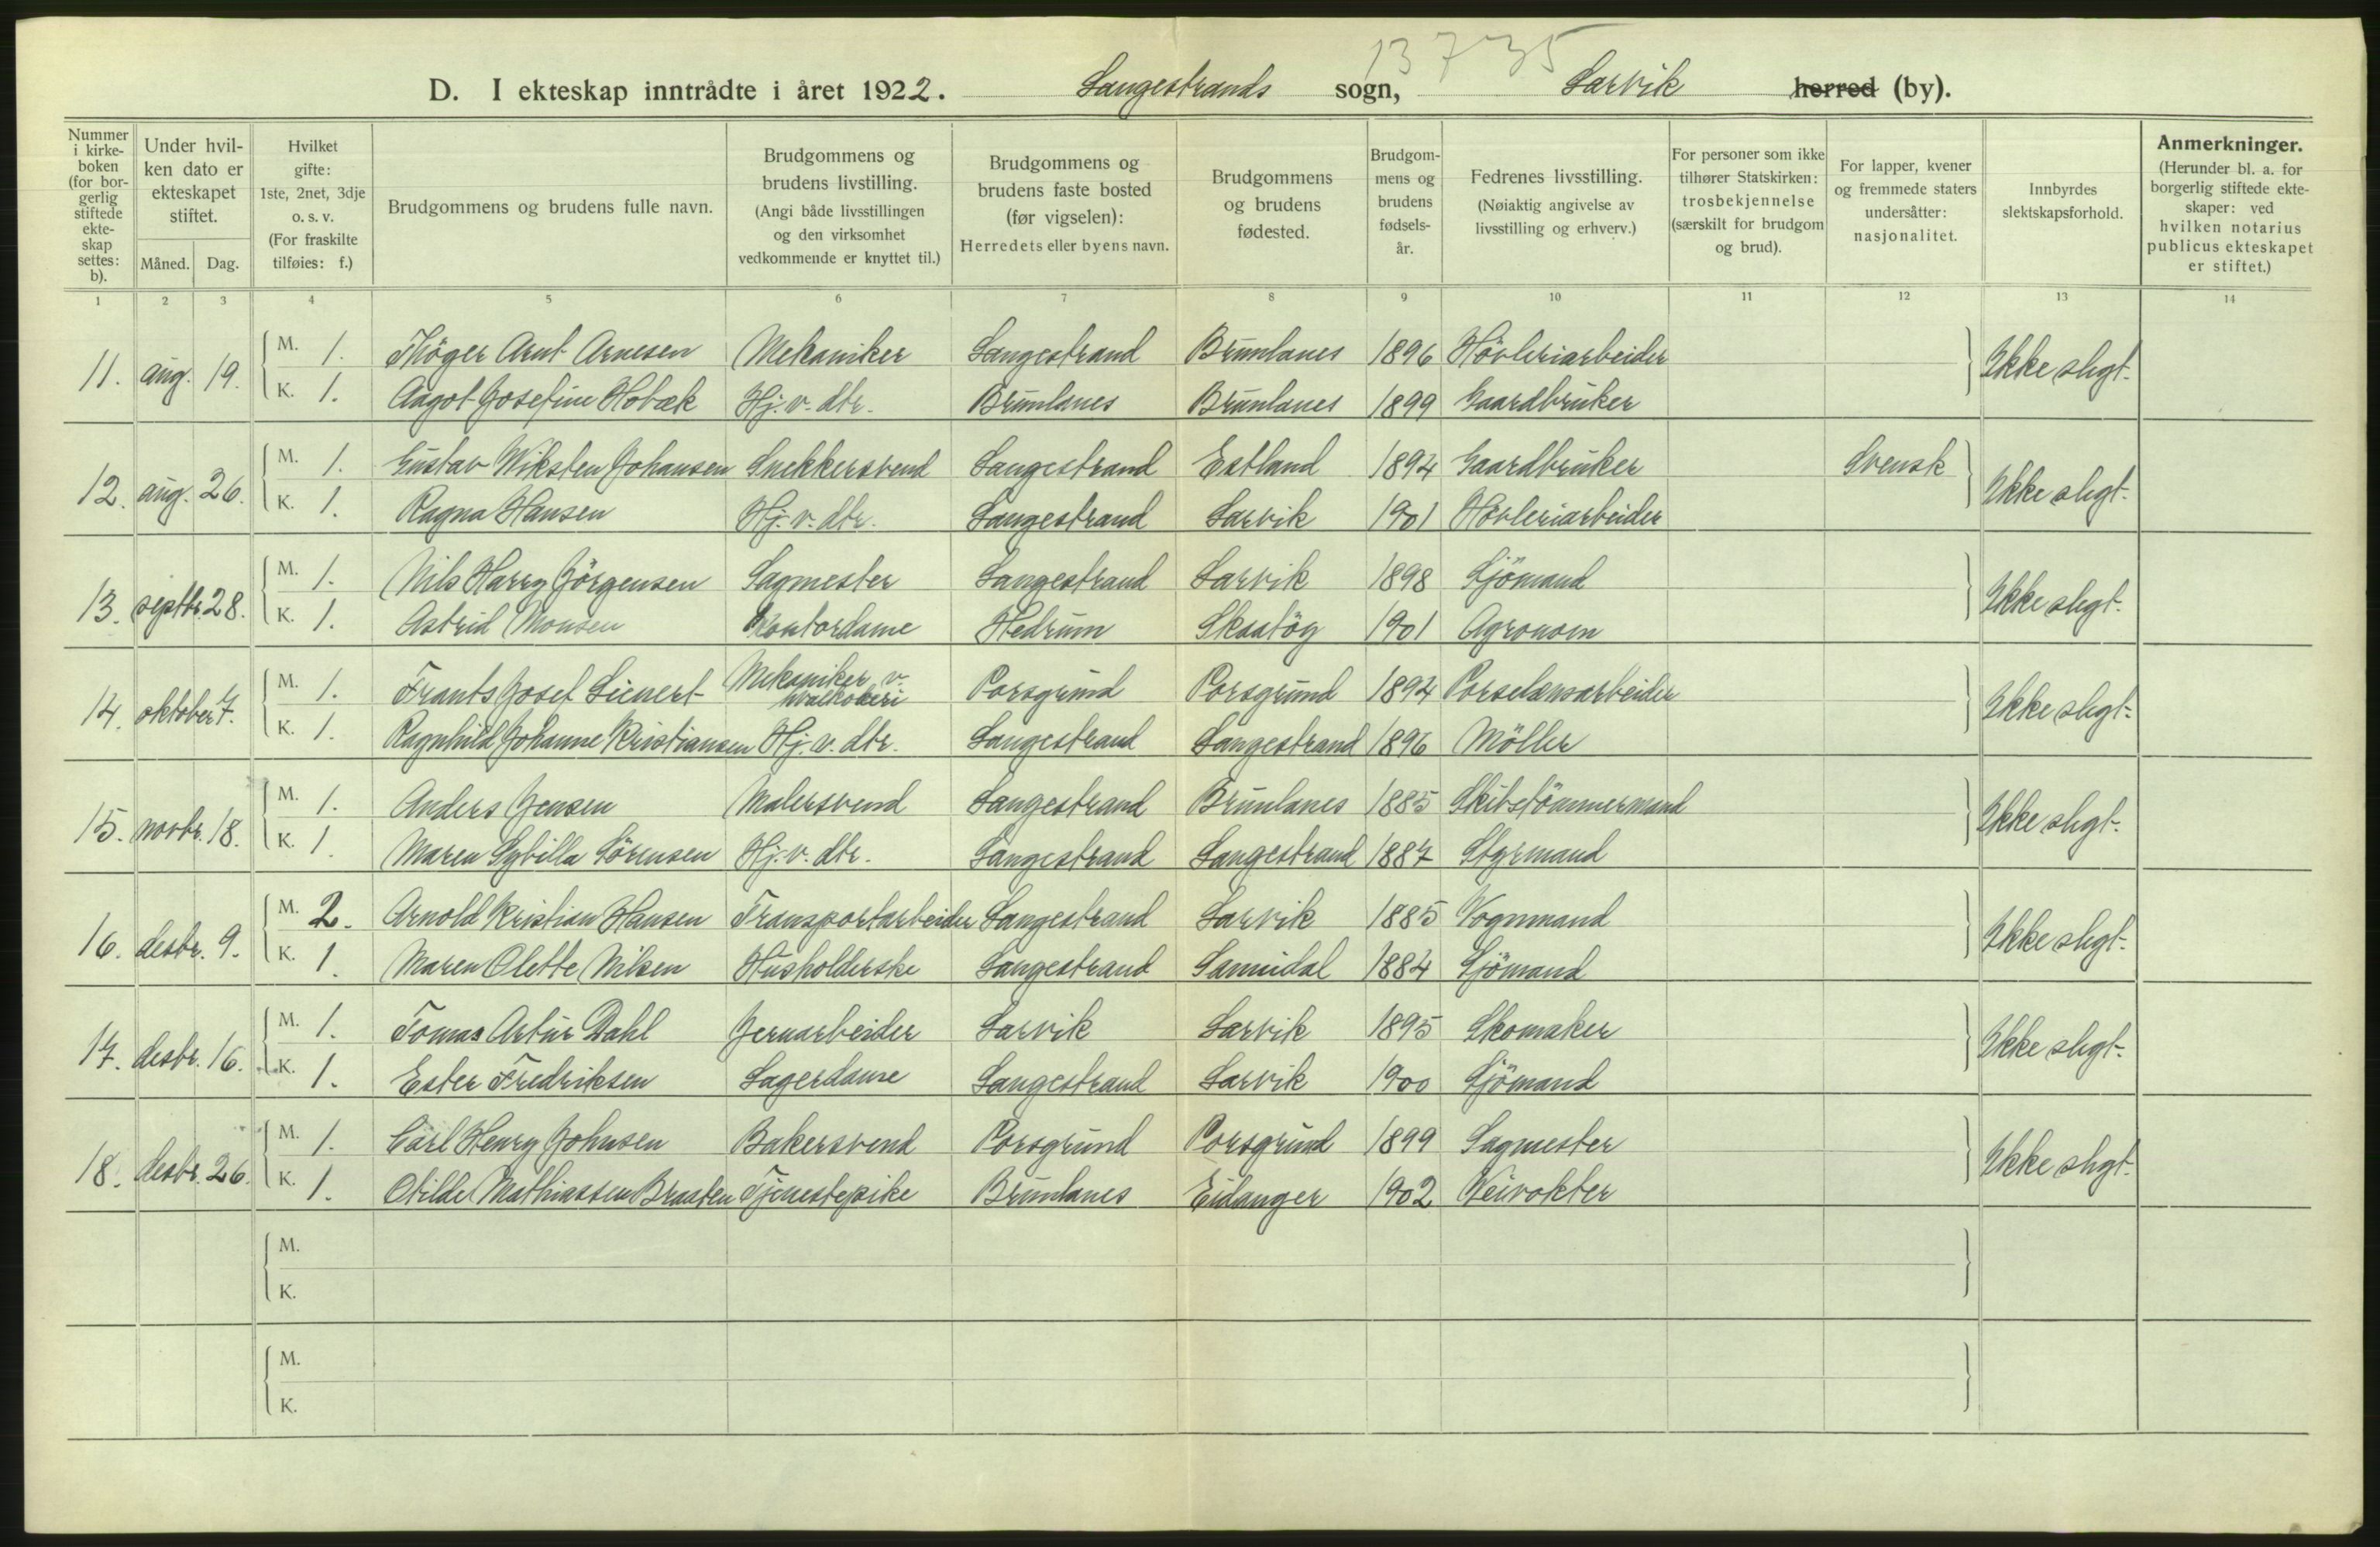 13 735
D. I ekteskap inntrådte i året 1922. Langestrands sogn, Larvik herred (by).
Nummer i kirkeboken (for borgerlig stiftede ekteskap settes: b).
Under hvilken dato er ekteskapet stiftet.
Måned. Dag.
Hvilket gifte: 1ste, 2net, 3dje o. s. v. (For fraskilte tilføies: f.)
Brudgommens og brudens fulle navn.
Brudgommens og brudens livstilling. (Angi både livsstillingen og den virksomhet vedkommende er knyttet til.)
Brudgommens og brudens faste bosted (før vigselen): Herredets eller byens navn.
Brudgommens og brudens fødested.
Brudgommens og brudens fødselsår.
Fedrenes livsstilling. (Nøiaktig angivelse av livsstilling og erhverv.)
For personer som ikke tilhører Statskirken: trosbekjennelse (særskilt for brudgom og brud).
For lapper, kvener og fremmede staters undersåtter: nasjonalitet.
Innbyrdes slektskapsforhold.
Anmerkninger. (Herunder bl. a. for borgerlig stiftede ekteskaper: ved hvilken notarius publicus ekteskapet er stiftet.)
1 2 3 4 5 6 7 8 9 10 11 12 13 14
11. aug. 19. M. 1. Thöger Arnt Arnesen Mekaniker Langestrand Brunlanes 1896 Hövleriarbeider Ikke slegt.
K. 1. Aagot Josefine Hobæk Hj. v. dtr. Brunlanes Brunlanes 1899 Gaardbruker
12. aug. 26. M. 1. Gustav Wiksten Johansen Snekkersvend Langestrand Estland 1894 Gaardbruker Svensk Ikke slegt.
K. 1. Ragna Hansen Hj. v. dtr. Langestrand Larvik 1901 Hövleriarbeider
13. septbr. 28. M. 1. Nils Harry Jörgensen Sagmester Langestrand Larvik 1898 Sjömand Ikke slegt.
K. 1. Astrid Monsen Kontordame Hedrum Skaatöy 1901 Agronom
14. oktober 7. M. 1. Frants Josef Lienert Mekaniker v. hvalkokeri Porsgrund Porsgrund 1894 Porselænsarbeider Ikke slegt.
K. 1. Ragnhild Johanne Kristiansen Hj. v. dtr. Langestrand Langestrand 1896 Möller
15. novbr. 18. M. 1. Anders Jensen Malersvend Langestrand Brunlanes 1885 Skibstömmermand Ikke slegt.
K. 1. Maren Sybilla Sörensen Hj. v. dtr. Langestrand Langestrand 1887 Styrmand
16. desbr. 9. M. 2. Arnold Kristian Hansen Transportarbeider Langestrand Larvik 1885 Vognmand Ikke slegt.
K. 1. Maren Olette Nilsen Husholderske Langestrand Sannidal 1884 Sjömand
17. desbr. 16. M. 1. Tomas Artur Dahl Jernarbeider Larvik Larvik 1895 Skomaker Ikke slegt.
K. 1. Ester Fredriksen Lagerdame Langestrand Larvik 1900 Sjömand
18. desbr. 26. M. 1. Carl Henry Johnsen Bakersvend Porsgrund Porsgrund 1899 Sagmester Ikke slegt.
K. 1. Otilde Mathiassen Braaten Tjenestepike Brunlanes Eidanger 1902 Veivokter
M.
K.
M.
K.